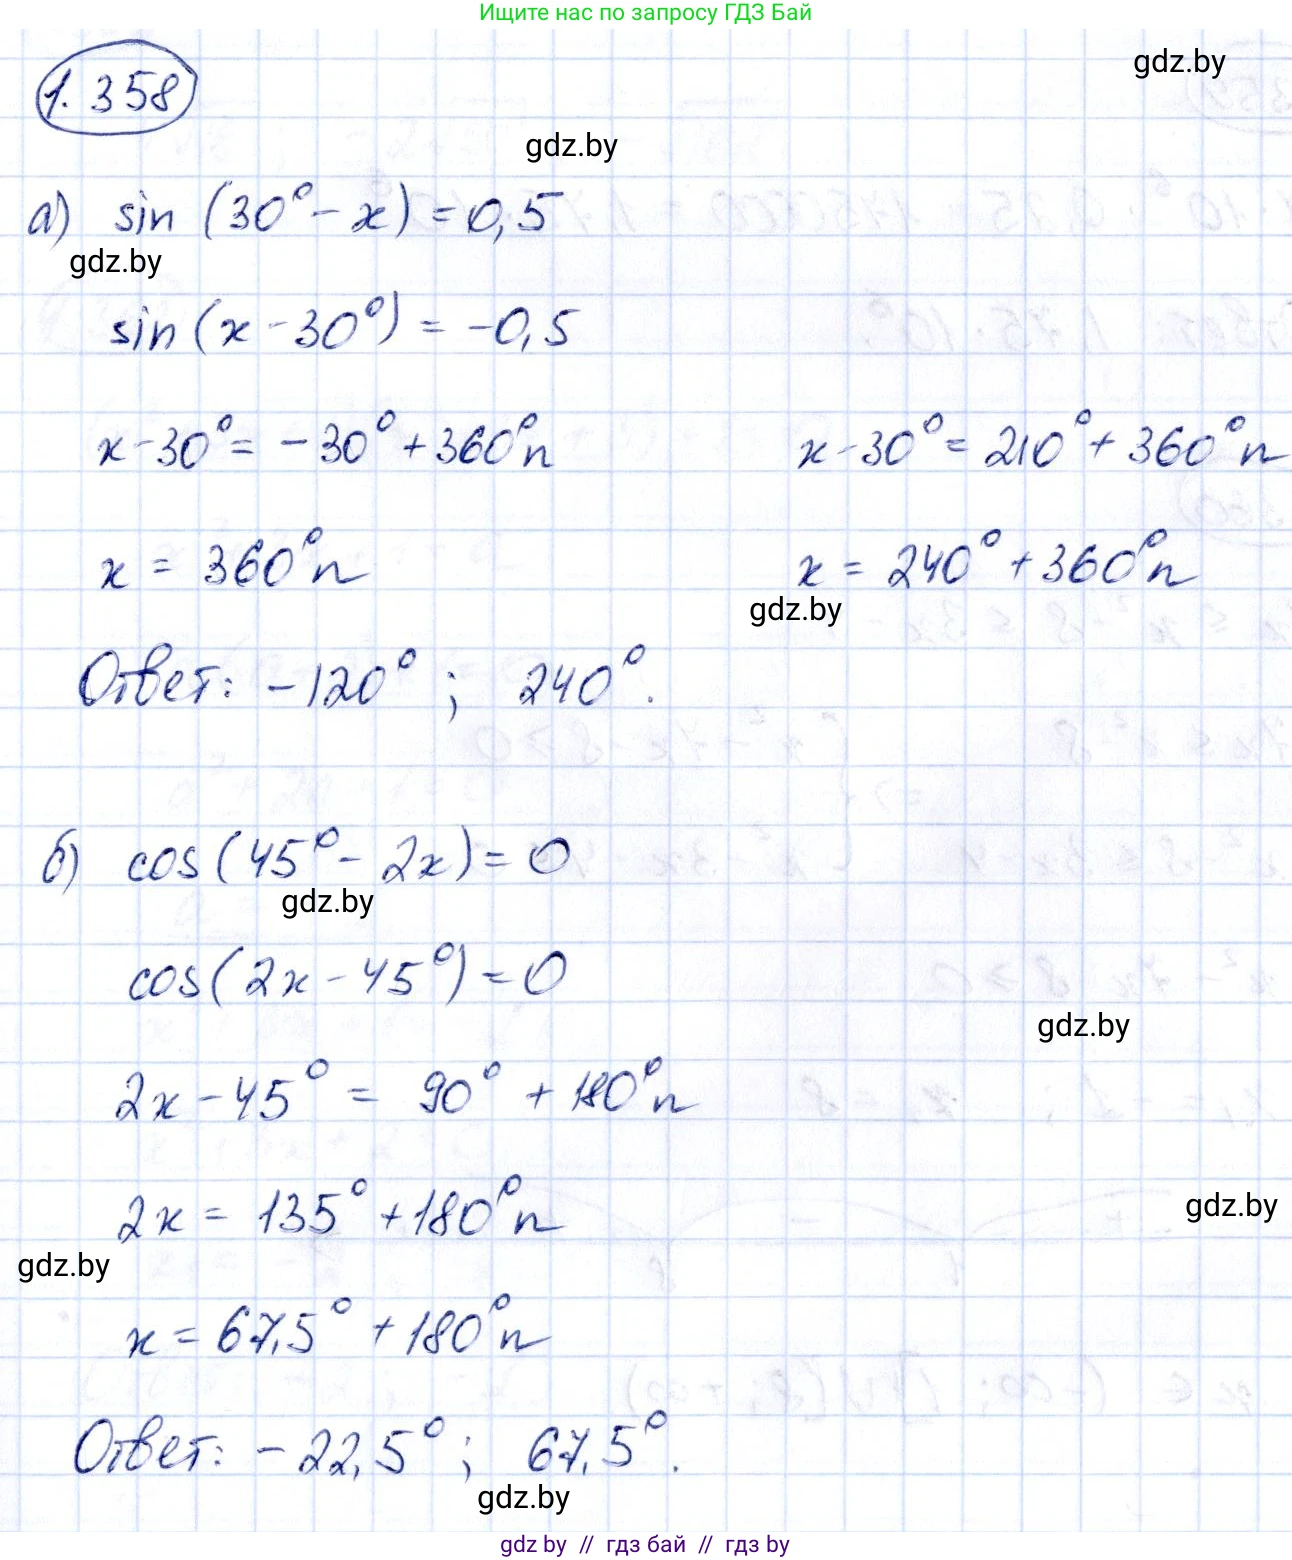 Ищите нас по запросу ГДЗ Бай
gdz.by
1.358
gdz.by
а) sin (30° - x) = 0,5
gdz.by
sin (x - 30°) = -0,5
x - 30° = -30° + 360°n x - 30° = 210° + 360°n
x = 360°n x = 240° + 360°n
gdz.by
Ответ: -120° ; 240°.
б) cos (45° - 2x) = 0
gdz.by
cos (2x - 45°) = 0
gdz.by
2x - 45° = 90° + 180°n
2x = 135° + 180°n
gdz.by
gdz.by
x = 67,5° + 180°n
Ответ: -22,5° ; 67,5°.
gdz.by
gdz by // гдз бай // gdz by